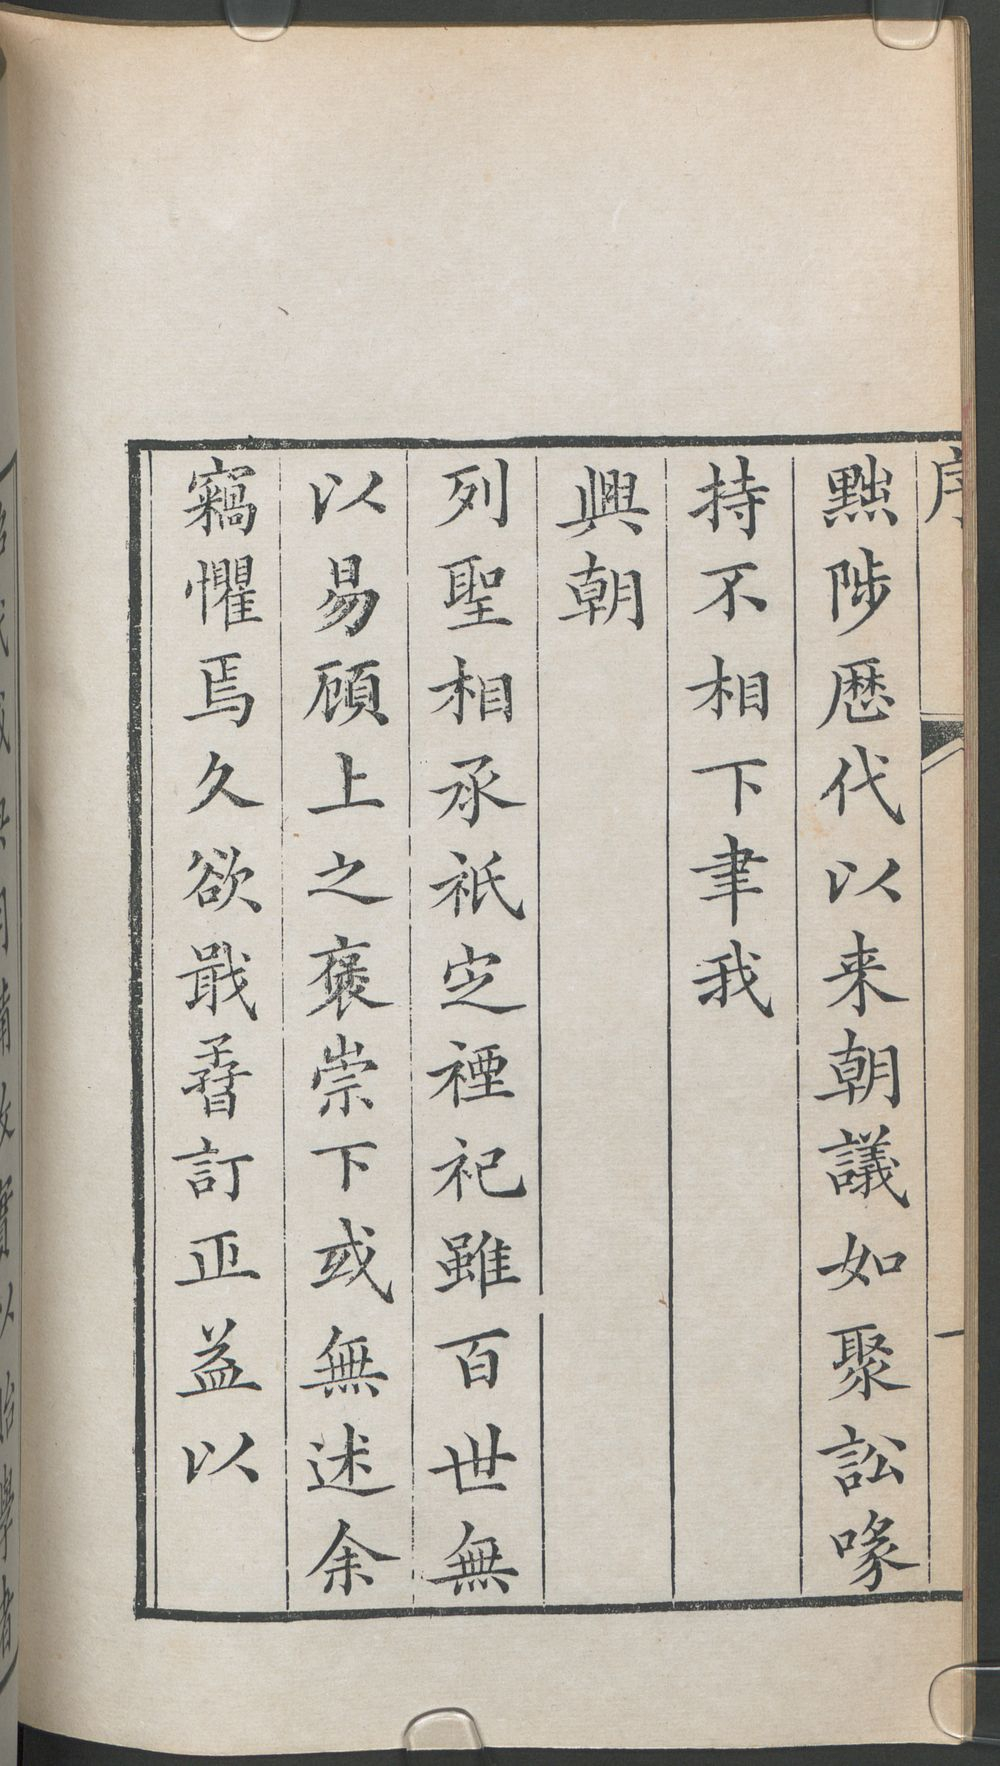 序
黜陟歷代以来朝議如聚訟喙
持不相下聿我
興朝
列聖相承祇定禋祀雖百世無
以易顧上之褒崇下或無述余
竊懼焉久欲戢孴訂正益以